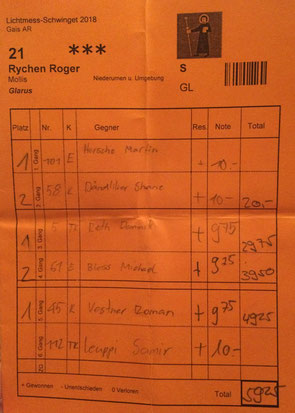 Lichtmess-Schwinget 2018
Gais AR
21 ***
Rychen Roger
Mollis Niederurnen u. Umgebung S
Glarus GL
Platz Nr. K Gegner Res. Note Total
1 1. Gang 101 E Hersche Martin + 10.-
2 2. Gang 58 Shane + 10.- 20.-
1 3. Gang 5 Roth + 9.75 29.75
2 4. Gang 61 Bless Michael + 9.25 39.50
1 5. Gang 45 K Vestner Roman + 9.75 49.25
6. Gang 112 TK Leuppi Samir + 10.-
ZG
+ Gewonnen - Unentschieden 0 Verloren Total 59.25